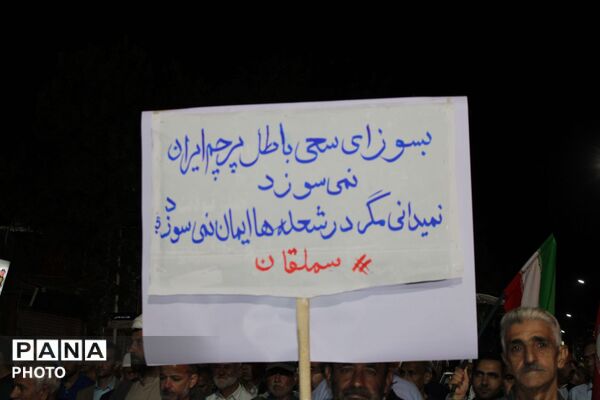 بسوز ای سعی باطل پرچم ایران
نمی سوزد
نمیدانی مگر در شعله ها ایمان نمی سوزد؟
#سملقان
PANA
PHOTO